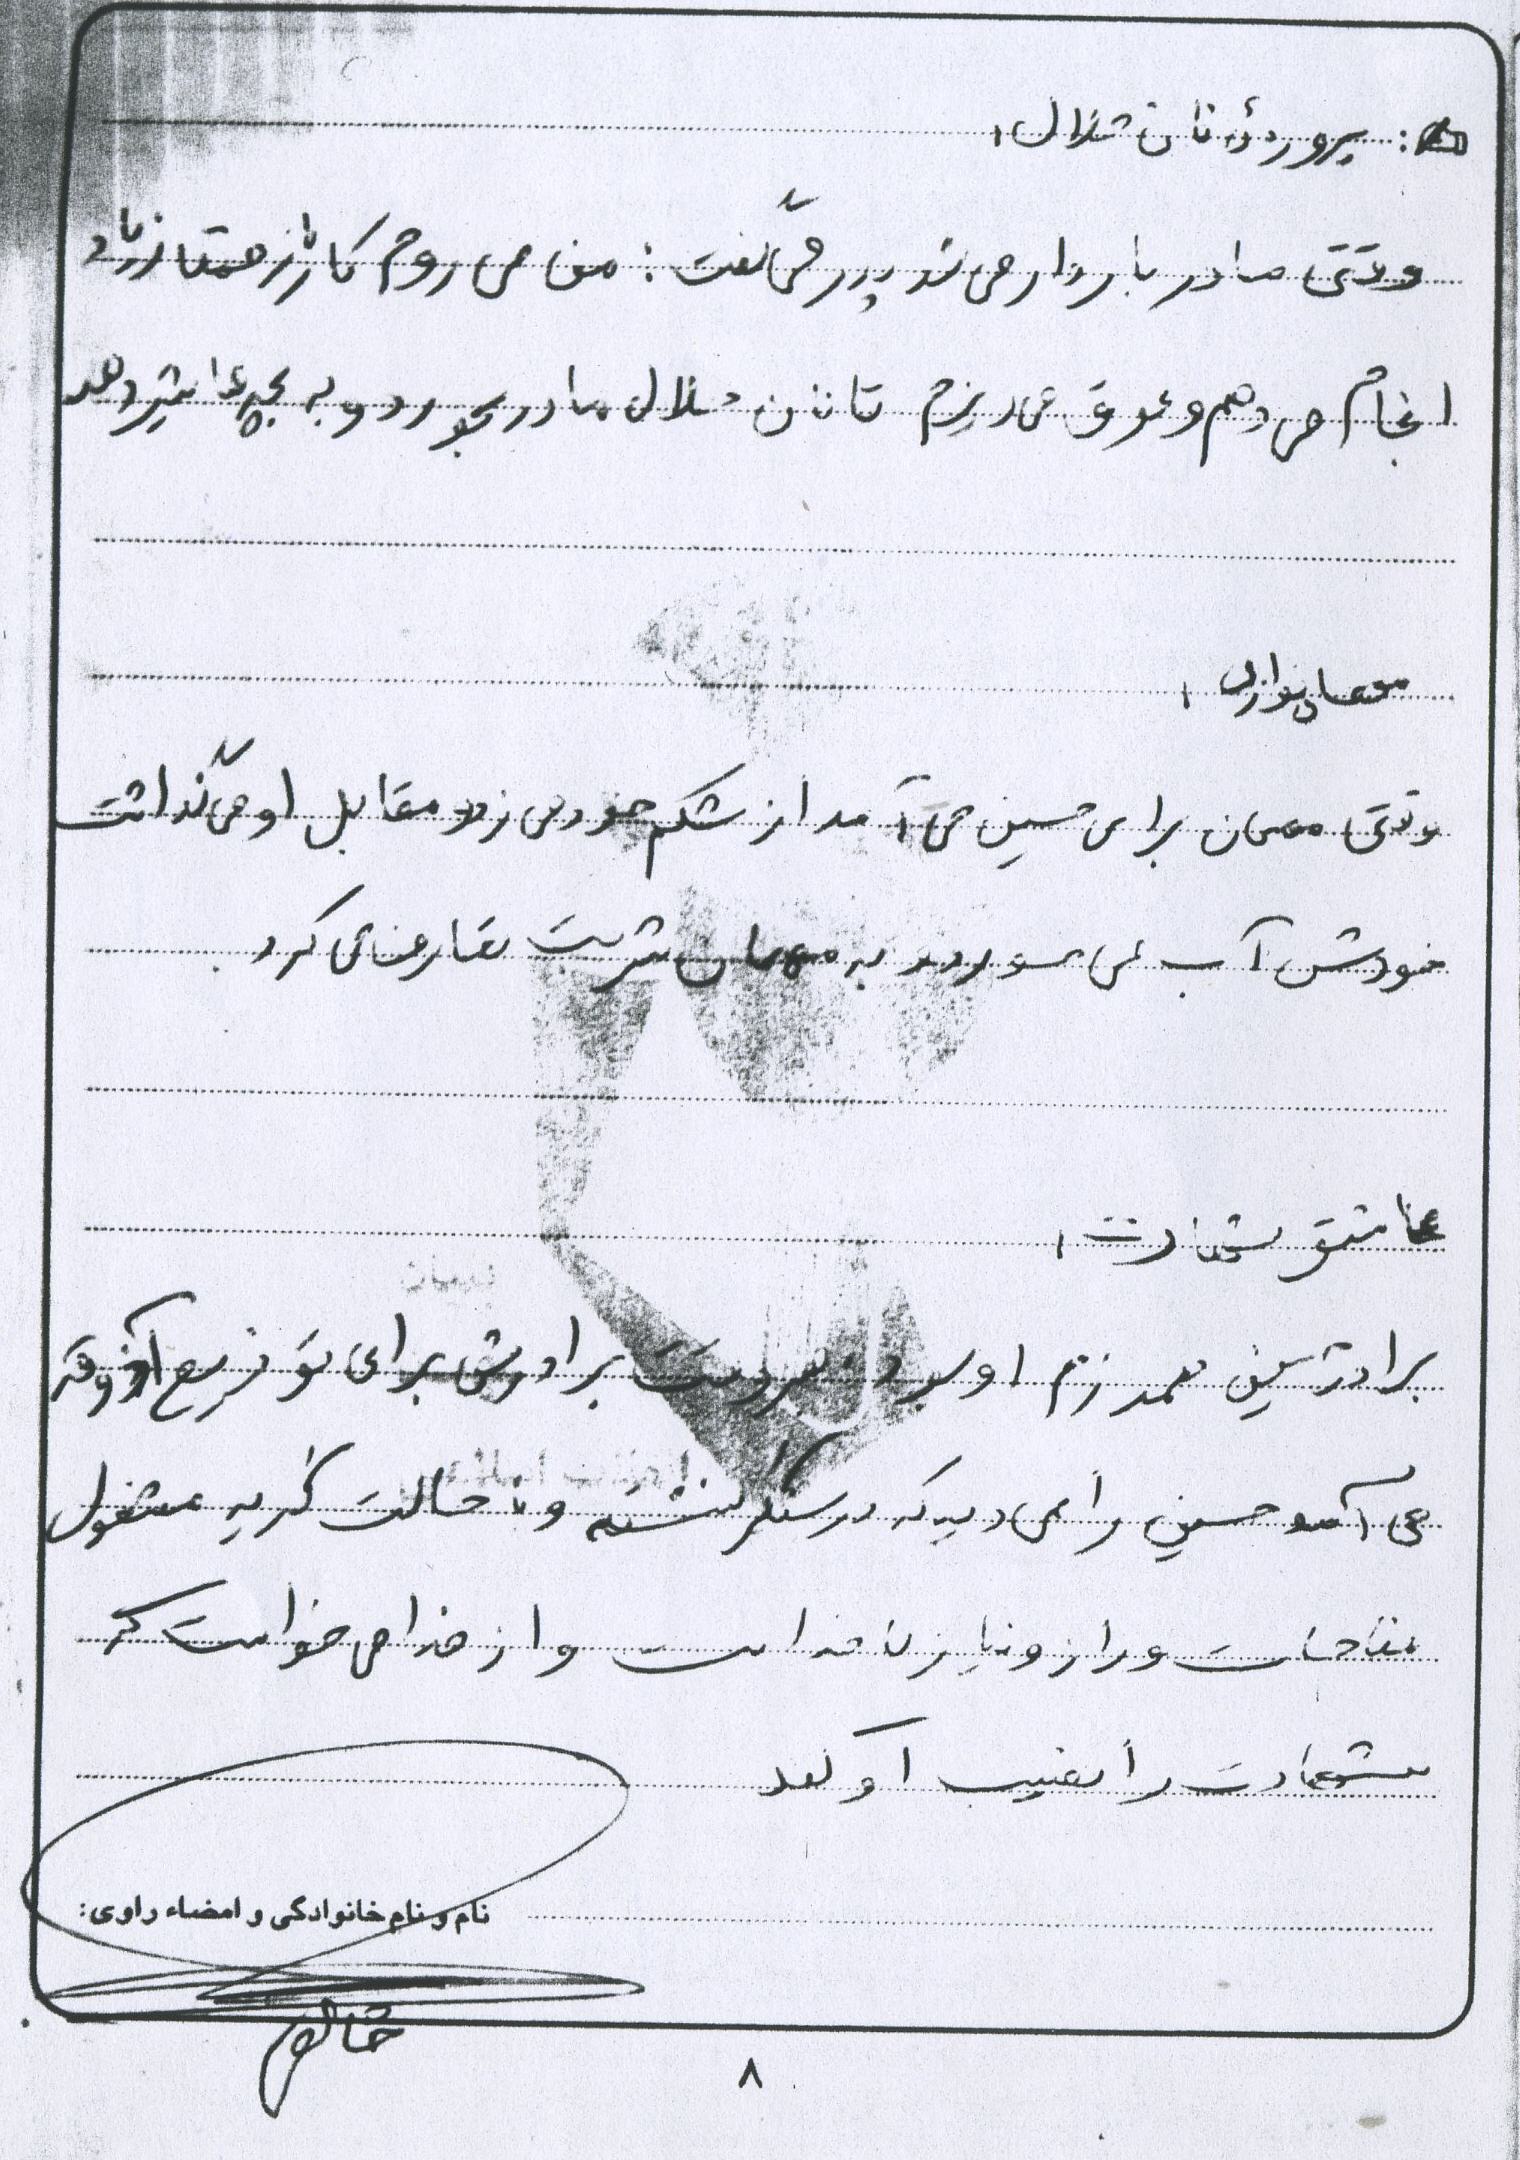 : پروردهٔ نان حلال:
وقتی مادر باردار می شد پدر می گفت: من می روم کار از همه زیاد
انجام می دهم و عرق می ریزم تا نان حلال مادر بخورد و به بچه ها شیر دهد
مهمان نوازی:
وقتی مهمان برای حسین می آمد از شکم خود می زد و مقابل او می گذاشت
خودش آب می خورد و به مهمان شربت تعارف می کرد.
عاشق شهادت:
برادر حسین همرزم او بود، هر وقت برادرش برای توزیع آذوقه
می آمد حسین را می دید که در سنگر نشسته و در حالت گریه مشغول
مناجات و راز و نیاز با خداست و از خدا می خواست که
شهادت را نصیب او کند
نام و نام خانوادگی و امضاء راوی:
۸